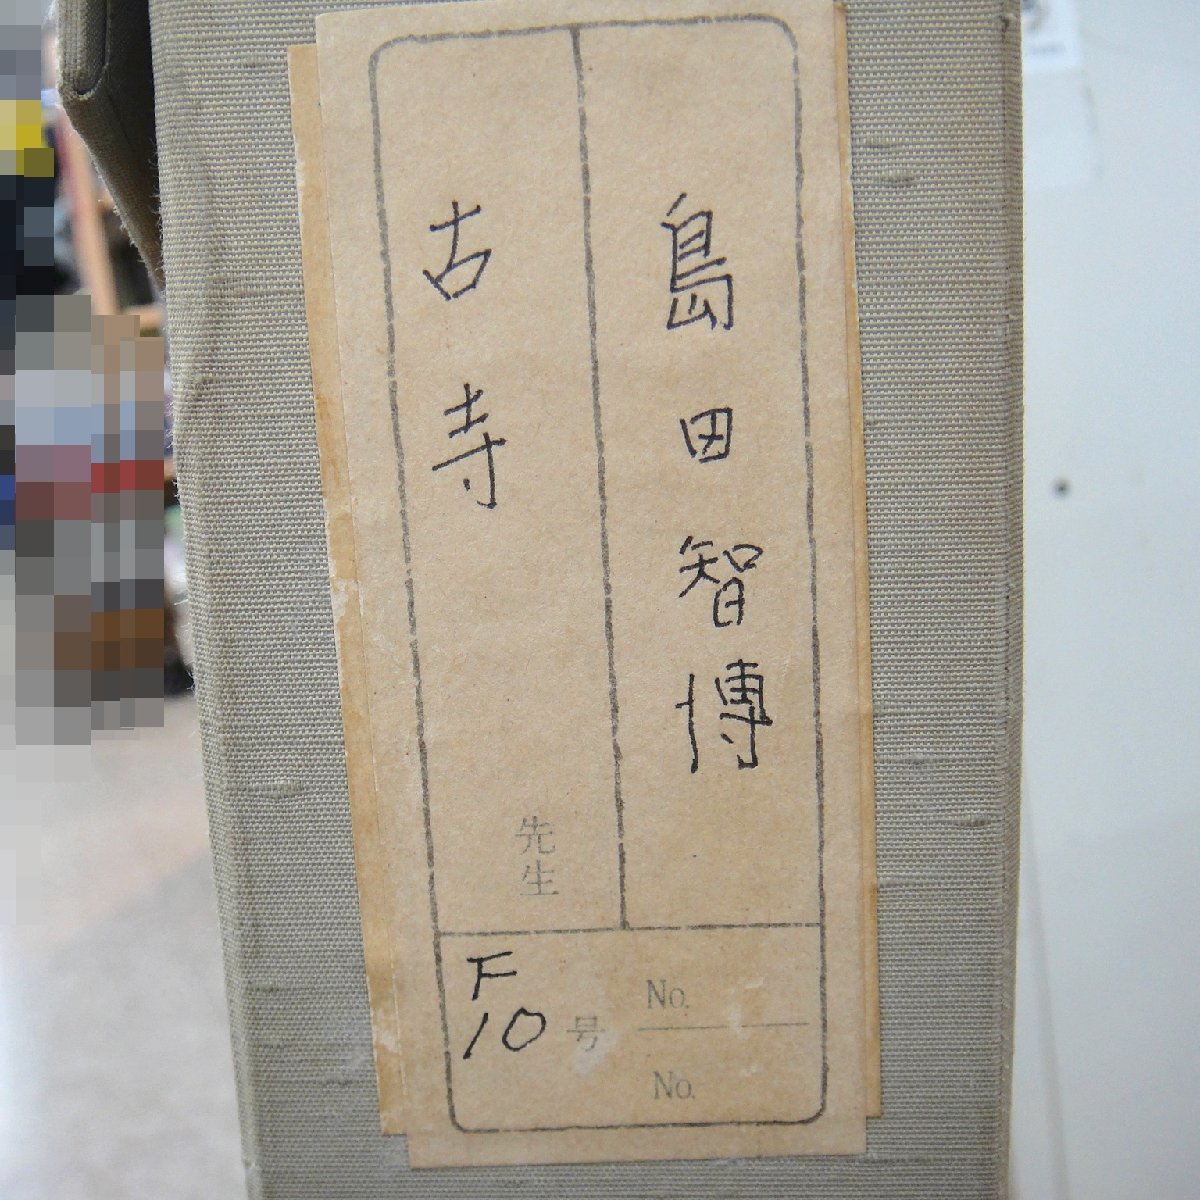 島田智博
古寺
先生
F
10号
No.
No.